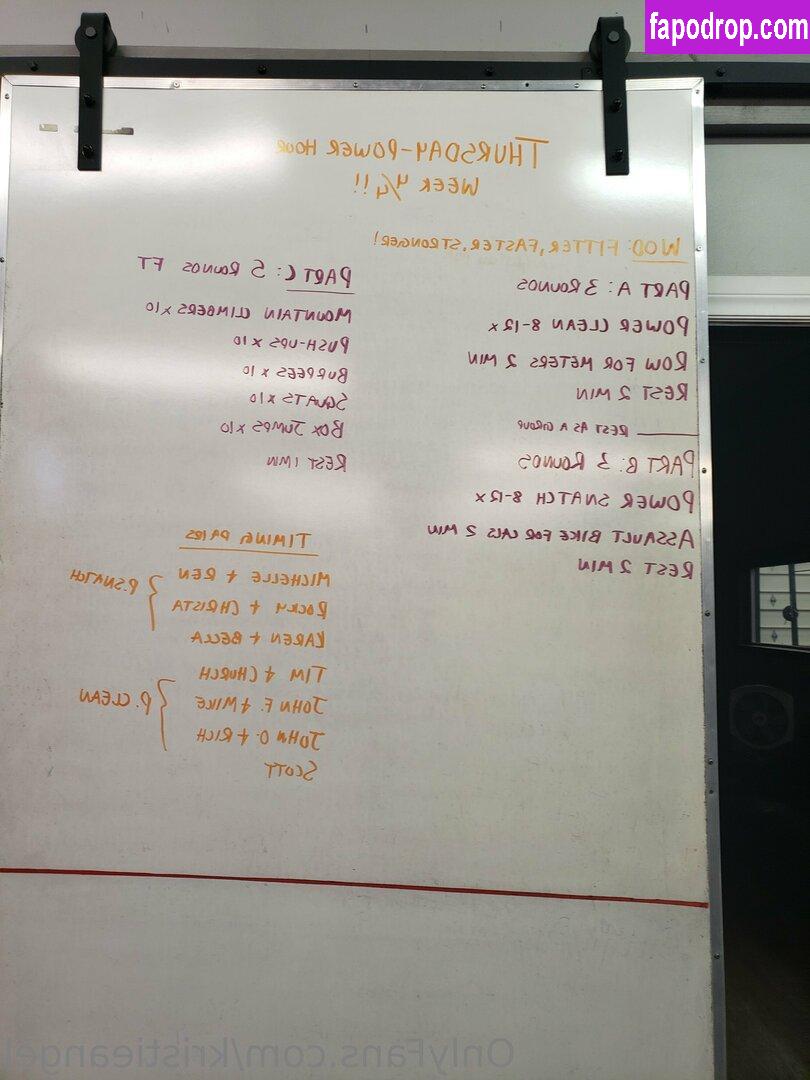 fapodrop.com
THURSDAY-POWER HOUR
WEEK 4/4!!
WOD: FITTER, FASTER, STRONGER!
PART A: 3 ROUNDS
POWER CLEAN 8-12x
ROW FOR METERS 2 MIN
REST 2 MIN
REST AS A GROUP
PART B: 3 ROUNDS
POWER SNATCH 8-12x
ASSAULT BIKE FOR CALS 2 MIN
REST 2 MIN
PART C: 5 ROUNDS FT
MOUNTAIN CLIMBERS x10
PUSH-UPS x 10
BURPEES x 10
SQUATS x 10
BOX JUMPS x10
REST 1 MIN
TIMING PAIRS
MICHELLE + REN
ROCKY + CHRISTA
KAREN + BELLA
P.SNATCH
TIM + CHURCH
JOHN F. + MIKE
JOHN O. + RICH
SCOTT
P. CLEAN
OnlyFans.com/kristieangel